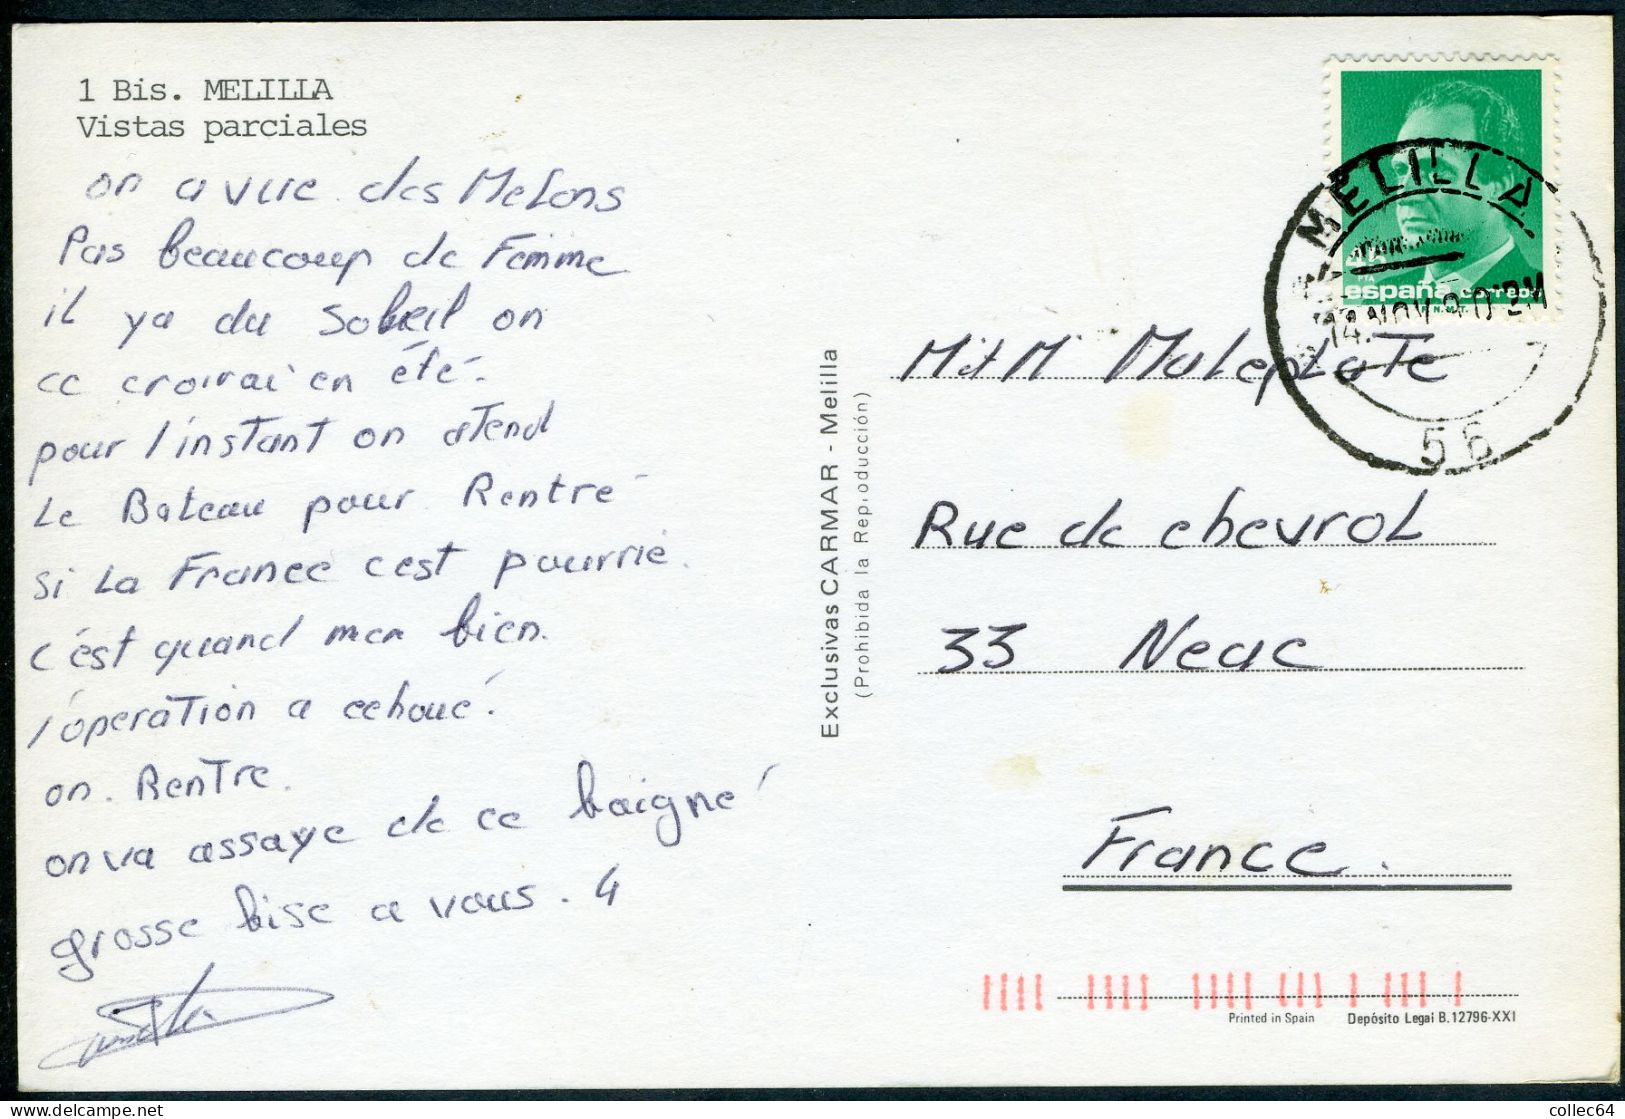 1 Bis. MELILLA
Vistas parciales
on a vue des Melons
Pas beaucoup de Femme
il ya du Soleil on
ce croirai en été.
pour l'instant on atend
Le Bateau pour Rentré
Si La France c'est pourrie.
c'est quand men bien.
l'opération a echoué.
on. Rentre.
on va assaye de ce baigné
grosse bise a vous. 4
Exclusivas CARMAR - Melilla
(Prohibida la Reproducción)
MELILLA
14 NOV 90 2M
56
españa correos
PTA
F.N.M.T.
M et M Maleplate
Rue de chevrol
33 Neac
France.
Printed in Spain Depósito Legal B.12796-XXI
collec64